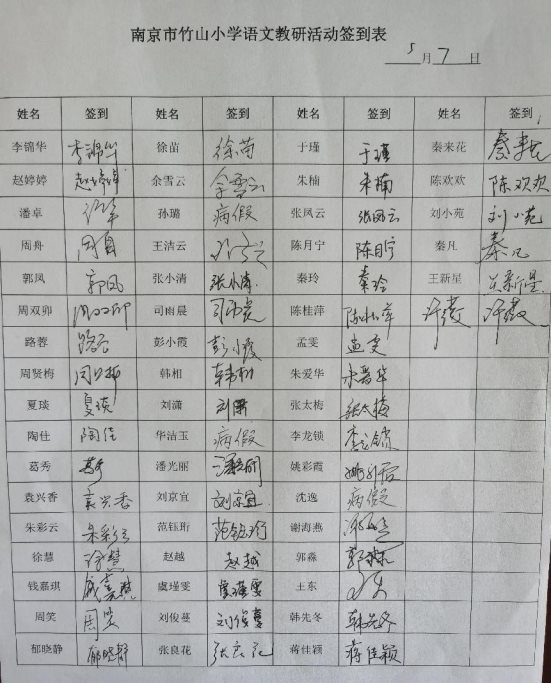 南京市竹山小学语文教研活动签到表
5月7日
姓名 签到 姓名 签到 姓名 签到 姓名 签到
李锦华 李锦华 徐苗 徐苗 于瑾 于瑾 秦来花 秦来花
赵婷婷 赵婷婷 余雪云 余雪云 朱楠 朱楠 陈欢欢 陈欢欢
潘卓 潘卓 孙璐 病假 张凤云 张凤云 刘小苑 刘小苑
周舟 周舟 王洁云 陈月宁 陈月宁 秦凡 秦凡
郭凤 郭凤 张小清 张小清 秦玲 秦玲 王新星 王新星
周双卯 周双卯 司雨晨 司雨晨 陈桂萍 陈桂萍 许薇 许薇
路蓉 路蓉 彭小霞 彭小霞 孟雯 孟雯
周贤梅 周贤梅 韩相 韩相 朱爱华 朱爱华
夏琰 夏琰 刘潇 刘潇 张太梅 张太梅
陶仕 陶仕 华洁玉 病假 李龙锁 李龙锁
葛秀 葛秀 潘光丽 潘光丽 姚彩霞 姚彩霞
袁兴香 袁兴香 刘京宜 刘京宜 沈逸 病假
朱彩云 朱彩云 范钰珩 范钰珩 谢海燕
徐慧 徐慧 赵越 赵越 郭淼 郭淼
钱嘉琪 钱嘉琪 虞瑾雯 虞瑾雯 王东
周笑 周笑 刘俊蔓 刘俊蔓 韩先冬 韩先冬
郁晓静 郁晓静 张良花 张良花 蒋佳颖 蒋佳颖